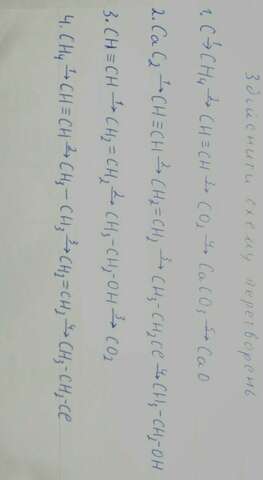 Здійснити схему перетворень
1. C →¹ CH₄ →² CH≡CH →³ CO₂ →⁴ CaCO₃ →⁵ CaO
2. CaC₂ →¹ CH≡CH →² CH₂=CH₂ →³ CH₃-CH₂Cl →⁴ CH₃-CH₂-OH
3. CH≡CH →¹ CH₂=CH₂ →² CH₃-CH₂-OH →³ CO₂
4. CH₄ →¹ CH≡CH →² CH₃-CH₃ →³ CH₂=CH₂ →⁴ CH₃-CH₂-Cl